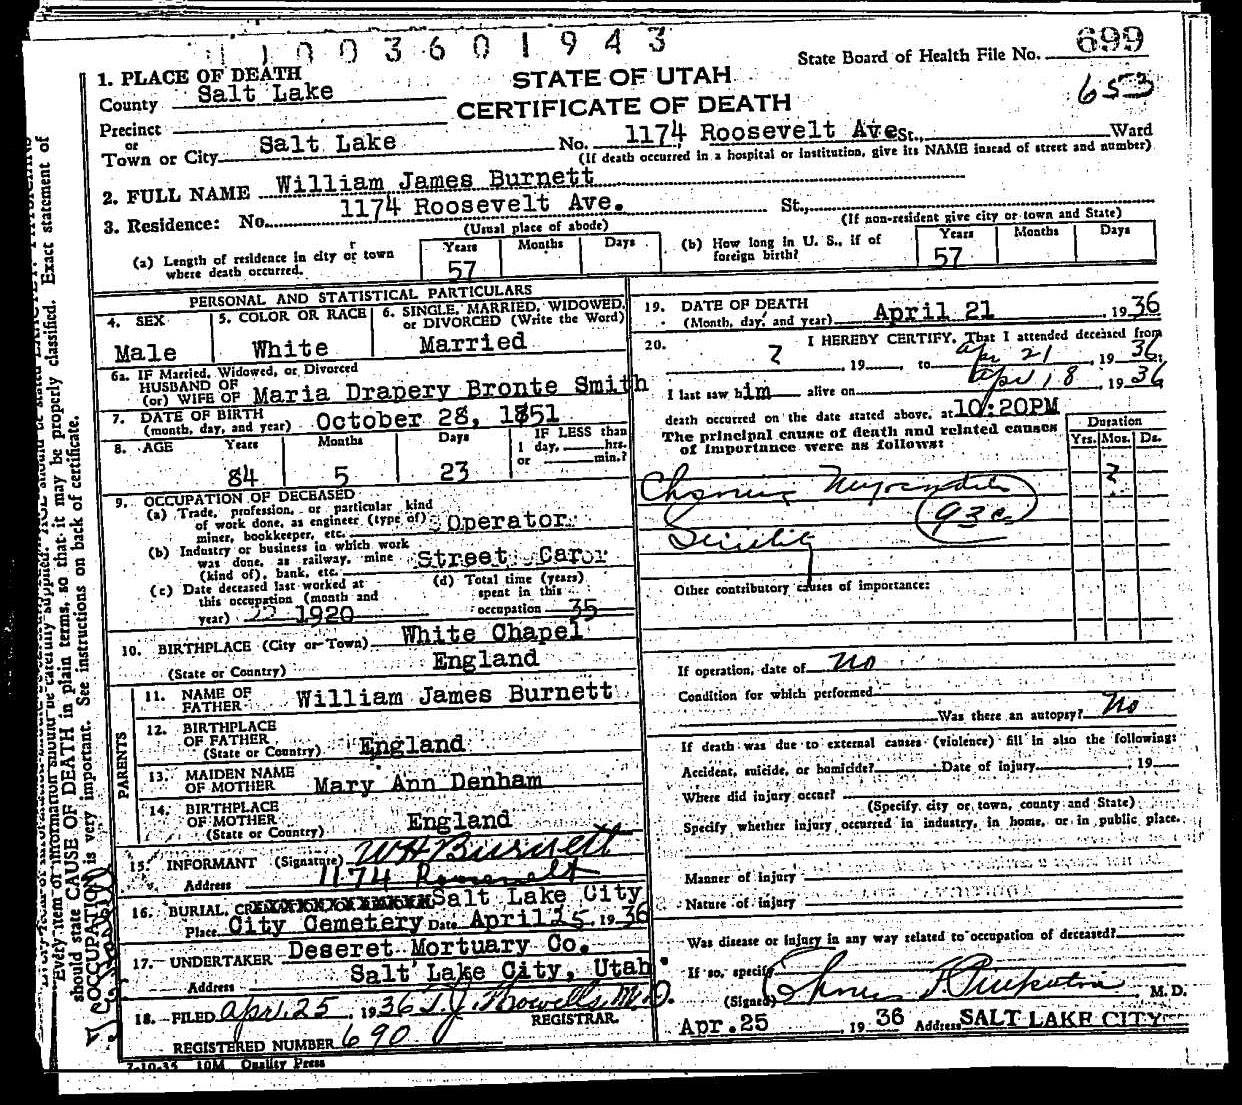 1 1 0 0 3 6 0 1 9 4 3
State Board of Health File No. 699
653
STATE OF UTAH
CERTIFICATE OF DEATH
1. PLACE OF DEATH
County Salt Lake
Precinct
or
Town or City Salt Lake No. 1174 Roosevelt Ave St., Ward
(If death occurred in a hospital or institution, give its NAME instead of street and number)
2. FULL NAME William James Burnett
3. Residence: No. 1174 Roosevelt Ave. St.,
(Usual place of abode) (If non-resident give city or town and State)
(a) Length of residence in city or town where death occurred. Years 57 Months Days
(b) How long in U. S., if of foreign birth? Years 57 Months Days
PERSONAL AND STATISTICAL PARTICULARS
4. SEX Male
5. COLOR OR RACE White
6. SINGLE, MARRIED, WIDOWED, or DIVORCED (Write the Word) Married
6a. IF Married, Widowed, or Divorced
HUSBAND OF
(or) WIFE OF Maria Drapery Bronte Smith
7. DATE OF BIRTH
(month, day, and year) October 28, 1851
8. AGE Years 84 Months 5 Days 23
IF LESS than
1 day, hrs.
or min.?
9. OCCUPATION OF DECEASED
(a) Trade, profession, or particular kind
of work done, as engineer (type of)
miner, bookkeeper, etc. Operator
(b) Industry or business in which work
was done, as railway, mine
(kind of), bank, etc. Street Car
(c) Date deceased last worked at
this occupation (month and
year) 1920
(d) Total time (years)
spent in this
occupation 35
10. BIRTHPLACE (City or Town) White Chapel
(State or Country) England
PARENTS
11. NAME OF
FATHER William James Burnett
12. BIRTHPLACE
OF FATHER
(State or Country) England
13. MAIDEN NAME
OF MOTHER Mary Ann Denham
14. BIRTHPLACE
OF MOTHER
(State or Country) England
15. INFORMANT (Signature) W H Burnett
Address 1174 Roosevelt
16. BURIAL, Salt Lake City
Place City Cemetery Date April 25, 1936
17. UNDERTAKER Deseret Mortuary Co.
Address Salt Lake City, Utah.
18. FILED Apr. 25 1936 T. J. Howells, M.D.
REGISTRAR.
REGISTERED NUMBER 690
7-10-35 10M Quality Press
19. DATE OF DEATH
(Month, day, and year) April 21, 1936
20. I HEREBY CERTIFY, That I attended deceased from
?, 19 , to Apr 21, 1936;
I last saw him alive on Apr 18, 1936
death occurred on the date stated above, at 10:20PM
The principal cause of death and related causes
of importance were as follows:
Duration
Yrs. Mos. Ds.
?
Chronic Myocarditis
93c
Senility
Other contributory causes of importance:
If operation, date of No
Condition for which performed
Was there an autopsy? No
If death was due to external causes (violence) fill in also the following:
Accident, suicide, or homicide? Date of injury , 19
Where did injury occur?
(Specify city or town, county and State)
Specify whether injury occurred in industry, in home, or in public place.
Manner of injury
Nature of injury
Was disease or injury in any way related to occupation of deceased?
If so, specify
(Signed) M. D.
Apr. 25 1936 Address SALT LAKE CITY
Every item of information should be carefully supplied. AGE should be stated EXACTLY. PHYSICIANS
should state CAUSE OF DEATH in plain terms, so that it may be properly classified. Exact statement of
OCCUPATION is very important. See instructions on back of certificate.